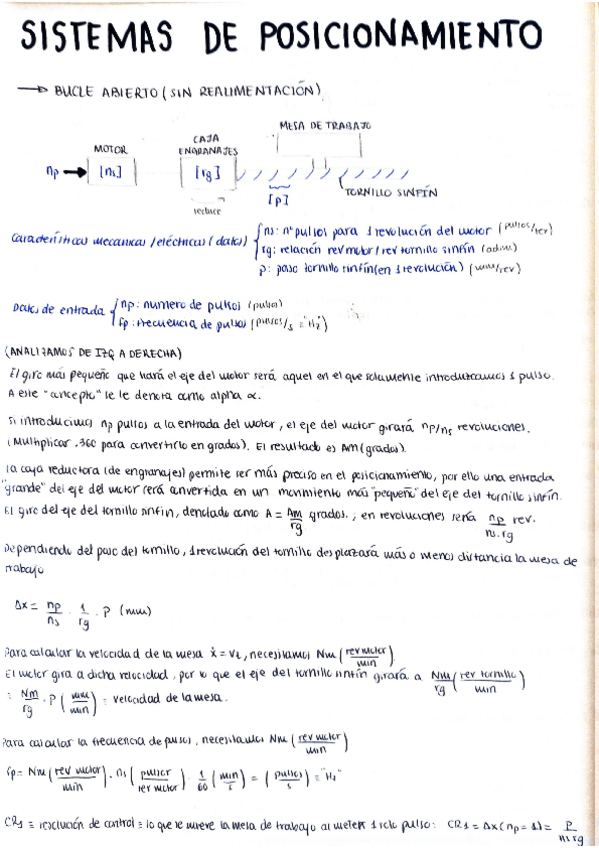 SISTEMAS DE POSICIONAMIENTO
→ BUCLE ABIERTO (SIN REALIMENTACIÓN)
MESA DE TRABAJO
MOTOR
CAJA ENGRANAJES
np → [ns]
[rg]
[p]
TORNILLO SINFÍN
reduce
Características mecánicas/eléctricas (datos)
ns: nº pulsos para 1 revolución del motor (pulsos/rev)
rg: relación rev motor / rev tornillo sinfín (adim)
p: paso tornillo sinfín (en 1 revolución) (mm/rev)
Datos de entrada
np: numero de pulsos (pulsos)
fp: frecuencia de pulsos (pulsos/s = "Hz")
(ANALIZAMOS DE IZQ A DERECHA)
El giro más pequeño que hará el eje del motor será aquel en el que solamente introduzcamos 1 pulso.
A este "concepto" se le denota como alpha α.
Si introducimos np pulsos a la entrada del motor, el eje del motor girará np/ns revoluciones.
(Multiplicar .360 para convertirlo en grados). El resultado es Am (grados).
La caja reductora (de engranajes) permite ser más preciso en el posicionamiento, por ello una entrada
"grande" del eje del motor será convertida en un movimiento más "pequeño" del eje del tornillo sinfín.
El giro del eje del tornillo sinfín, denotado como A = Am/rg grados.; en revoluciones sería np/ns.rg rev.
Dependiendo del paso del tornillo, 1 revolución del tornillo desplazará más o menos distancia la mesa de
trabajo
Δx = np/ns . 1/rg . P (mm)
Para calcular la velocidad de la mesa ẋ = vt, necesitamos Nm (rev motor/min)
El motor gira a dicha velocidad, por lo que el eje del tornillo sinfín girará a Nm/rg (rev tornillo/min)
= Nm/rg . P (mm/min) = velocidad de la mesa.
Para calcular la frecuencia de pulsos, necesitamos Nm (rev motor/min)
fp = Nm (rev motor/min) . ns (pulsos/rev motor) . 1/60 (min/s) = (pulsos/s) = "Hz"
CR1 ≡ resolución de control ≡ lo que se mueve la mesa de trabajo al meter 1 solo pulso: CR1 = Δx (np = 1) = P/ns rg